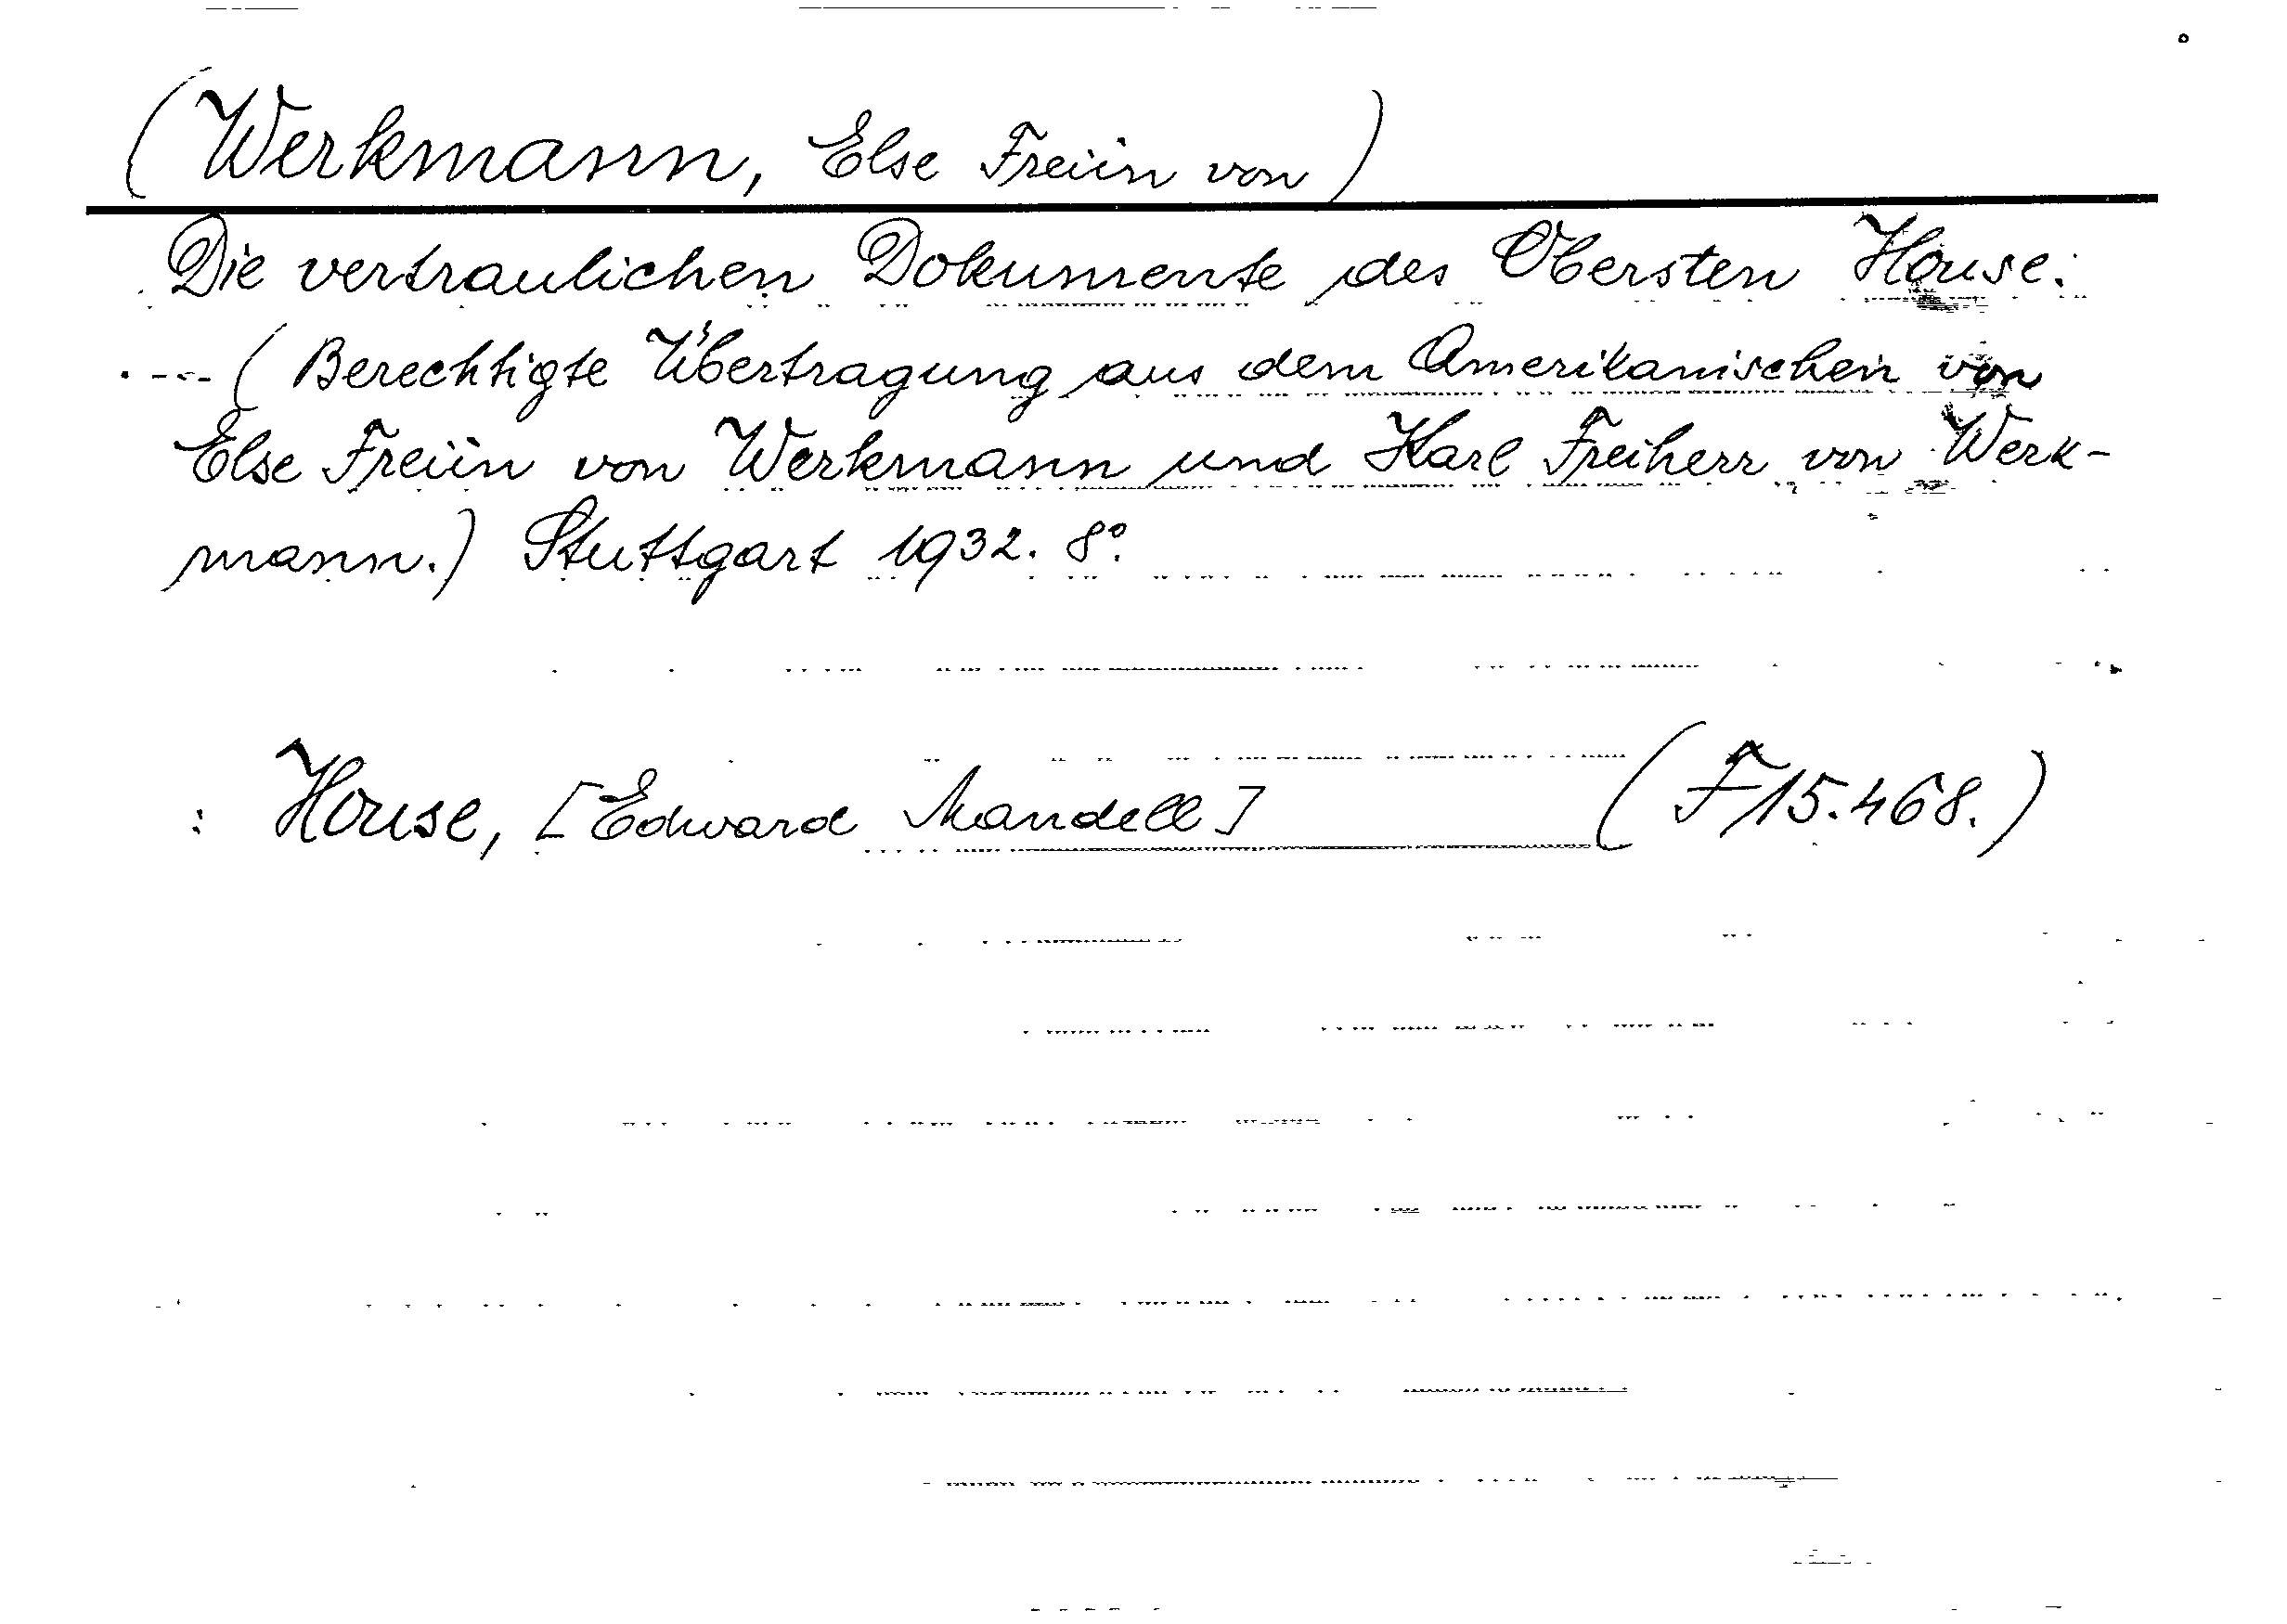 (Werkmann, Else Freiin von)
Die vertraulichen Dokumente des Obersten House.
.--- (Berechtigte Übertragung aus dem Amerikanischen von
Else Freiin von Werkmann und Karl Freiherr von Werk-
mann.) Stuttgart 1932. 8°.
: House, [Edward Mandell] (F 15.468.)